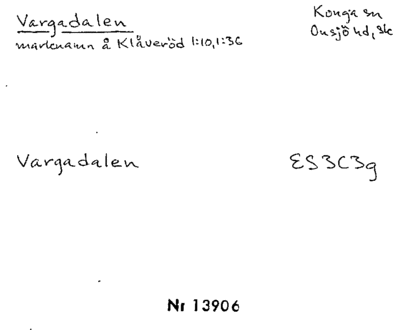 Vargadalen
Konga sn
Onsjö hd, sk
marknamn å Klåveröd 1:10, 1:36
Vargadalen
ES3C3g
Nr 13906